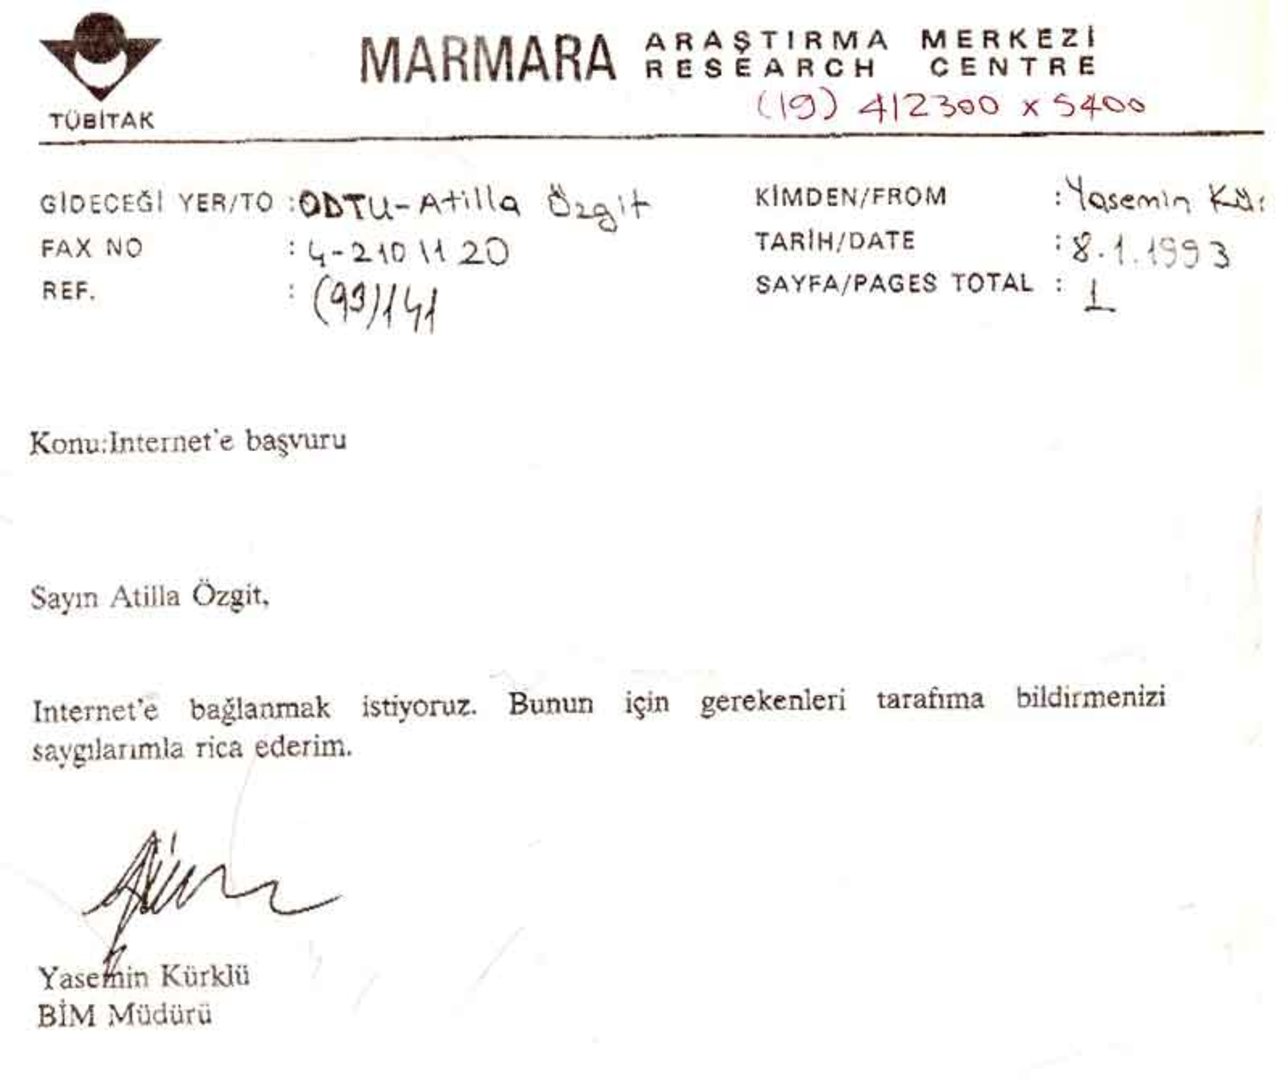 TÜBİTAK
MARMARA ARAŞTIRMA MERKEZİ
RESEARCH CENTRE
(19) 412300 x 5400
GİDECEĞİ YER/TO : ODTU-Atilla Özgit
FAX NO : 4-210 11 20
REF. : (93)/141
KİMDEN/FROM : Yasemin
TARİH/DATE : 8.1.1993
SAYFA/PAGES TOTAL : 1
Konu:Internet'e başvuru
Sayın Atilla Özgit,
Internet'e bağlanmak istiyoruz. Bunun için gerekenleri tarafıma bildirmenizi
saygılarımla rica ederim.
Yasemin Kürklü
BİM Müdürü